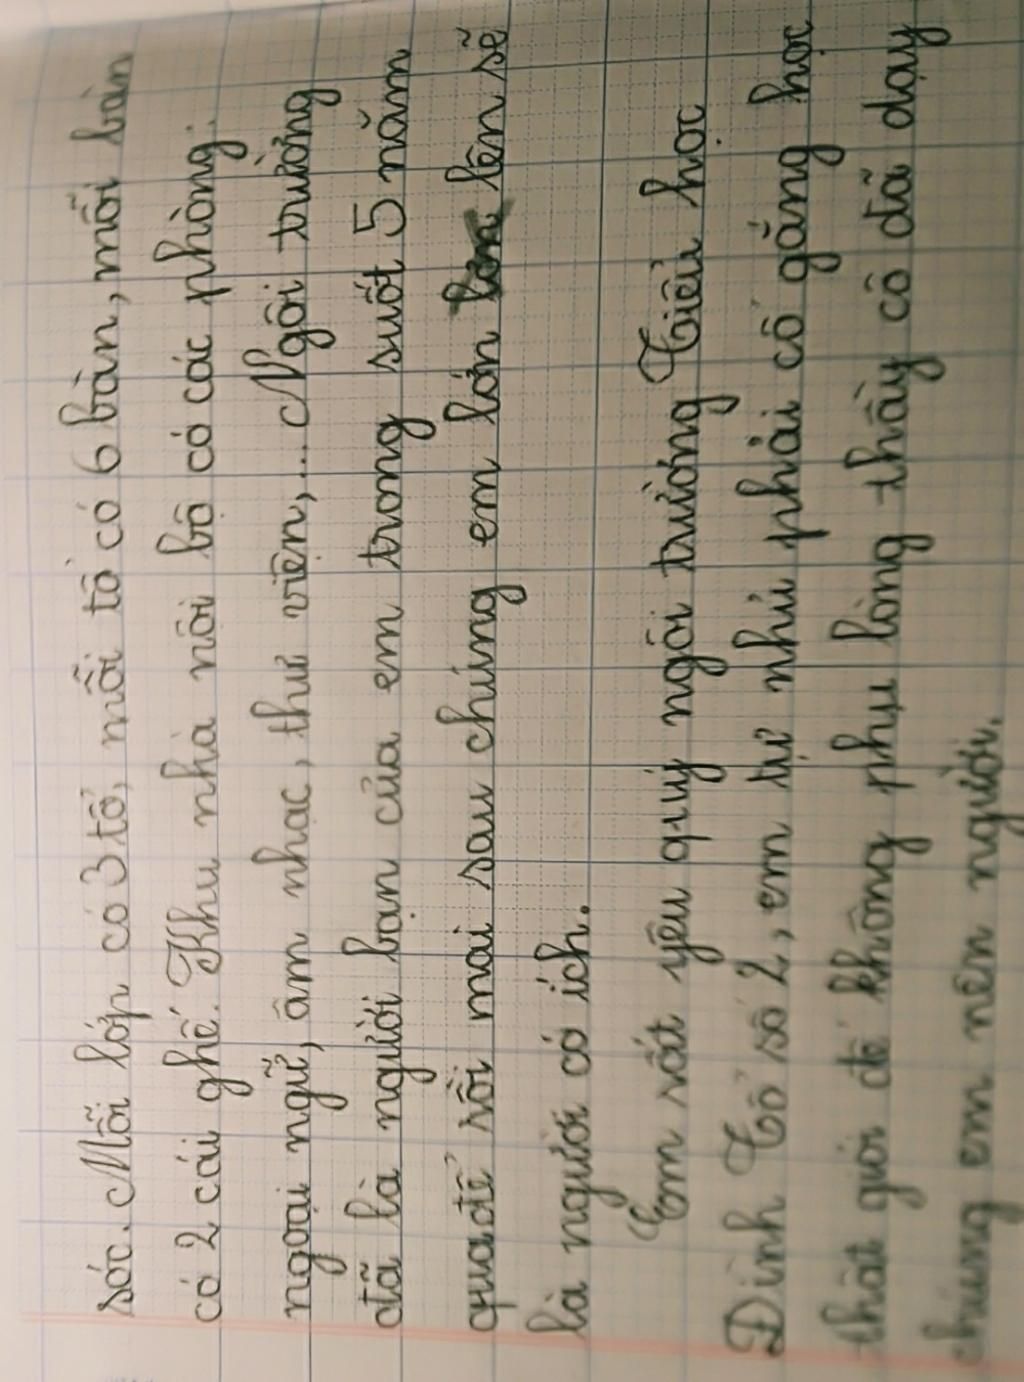 sóc. Mỗi lớp có 3 tổ, mỗi tổ có 6 bàn, mỗi bàn
có 2 cái ghế. Khu nhà nội bộ có các phòng:
ngoại ngữ, âm nhạc, thư viện,... Ngôi trường
đã là người bạn của em trong suốt 5 năm
qua để rồi mai sau chúng em lớn lên sẽ
là người có ích.
Em rất yêu quý ngôi trường Tiểu học
Đình Tổ số 2, em tự nhủ phải cố gắng học
thật giỏi để không phụ lòng thầy cô đã dạy
chúng em nên người.